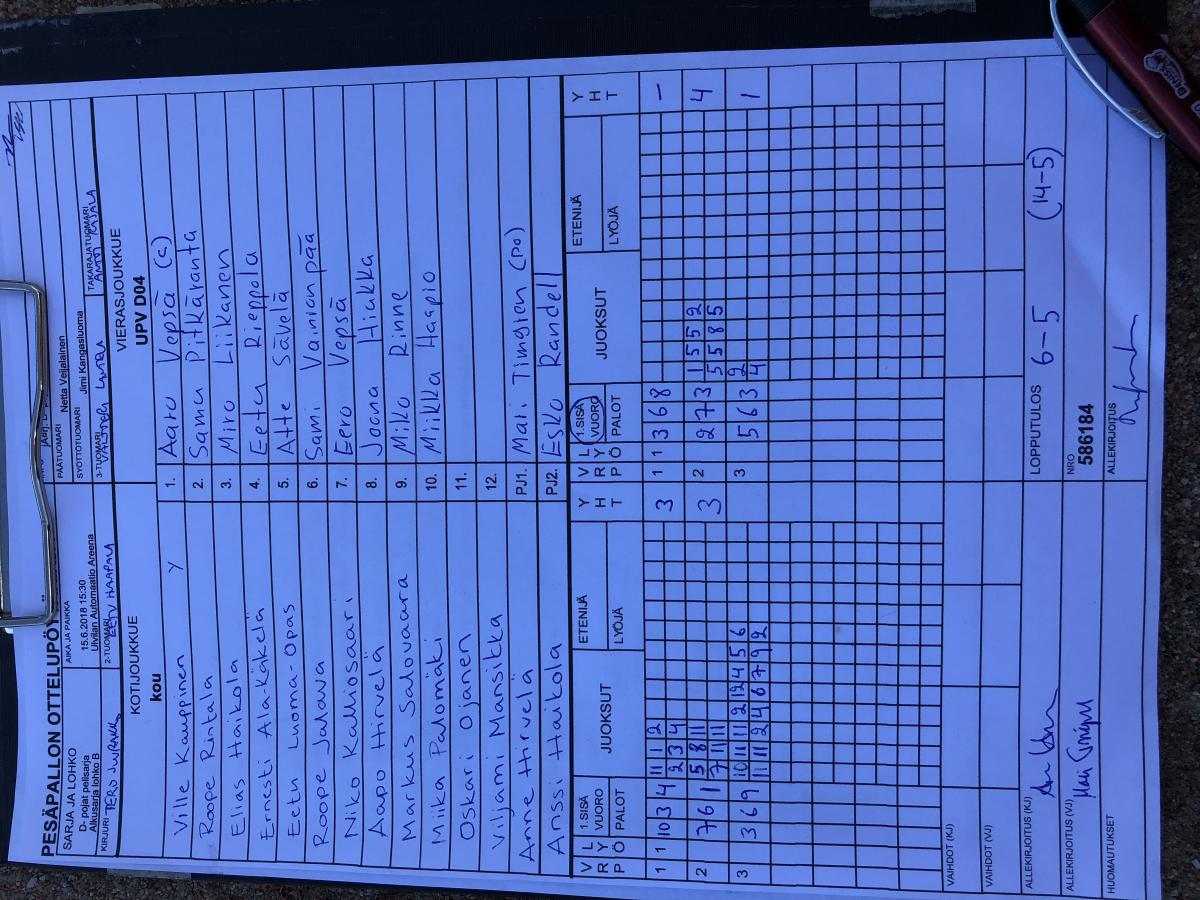 PESÄPALLON OTTELUPÖY
SARJA JA LOHKO
D- pojat pelisarja
Alkusarja lohko B
AIKA JA PAIKKA
15.6.2018 15:30
Ulvilan Automaatio Areena
PÄÄTUOMARI Netta Veijalainen
SYÖTTÖTUOMARI Jimi Kangasluoma
KIRJURI TERO
2-TUOMARI EETU HAAPALA
3-TUOMARI
TAKARAJATUOMARI
KOTIJOUKKUE
kou
VIERASJOUKKUE
UPV D04
Ville Kauppinen Y 1. Aaro Vepsä (c)
Roope Rintala 2. Samu Pitkäranta
Elias Haikola 3. Miro Liikanen
Ernesti Ala-Käkelä 4. Eetu Rieppola
Eetu Luoma-Opas 5. Atte Sävelä
Roope Jalava 6. Sami Vainionpää
Niko Kalliosaari 7. Eero Vepsä
Aapo Hirvelä 8. Joona Hiukka
Markus Salovaara 9. Miko Rinne
Miika Palomäki 10. Miikka Haapio
Oskari Ojanen 11.
Viljami Mansikka 12.
Anne Hirvelä PJ1. Mari Timgren (po)
Anssi Haikola PJ2. Esko Randell
V R P L Y Ö 1.SISÄ VUORO PALOT JUOKSUT ETENIJÄ LYÖJÄ Y H T V R P L Y Ö 1.SISÄ VUORO PALOT JUOKSUT ETENIJÄ LYÖJÄ Y H T
1 1 10 3 4 11 1 2 3 1 1 3 6 8 -
2 3 4
2 7 6 1 5 8 11 3 2 2 7 3 1 5 5 2 4
7 11 11 5 5 8 5
3 3 6 9 10 11 1 2 12 4 5 6 3 5 6 3 2 1
11 11 2 4 6 7 9 2 4
VAIHDOT (KJ)
VAIHDOT (VJ)
ALLEKIRJOITUS (KJ)
LOPPUTULOS 6-5 (14-5)
ALLEKIRJOITUS (VJ)
NRO
586184
HUOMAUTUKSET
ALLEKIRJOITUS